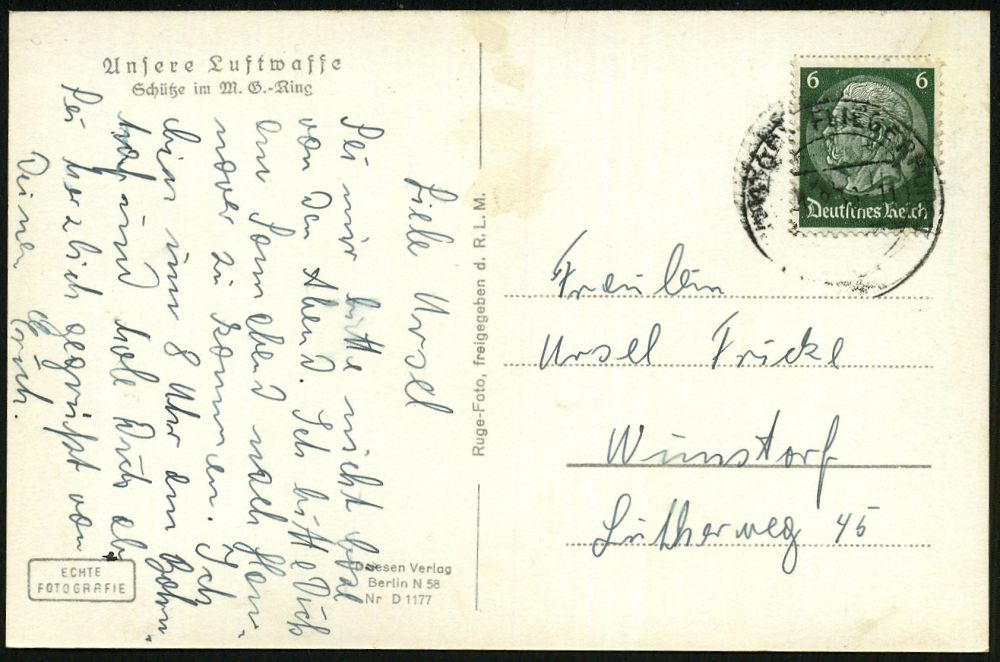 Unsere Luftwaffe
Schütze im M. G.-Ring
Liebe Ursel
Sei mir bitte nicht böse
von den Abend. Ich bitte Dich
am Sonnabend nach Han-
nover zu kommen. Ich
bin um 8 Uhr am Bahn-
hof und hole Dich ab
Sei herzlich gegrüßt von
Deinen
Erich.
ECHTE
FOTOGRAFIE
Ruge-Foto, freigegeben d. R. L. M.
Driesen Verlag
Berlin N 58
Nr D 1177
6 6
Deutsches Reich
FLIEGERH
Fräulein
Ursel Fricke
Wunstorf
Lutherweg 45